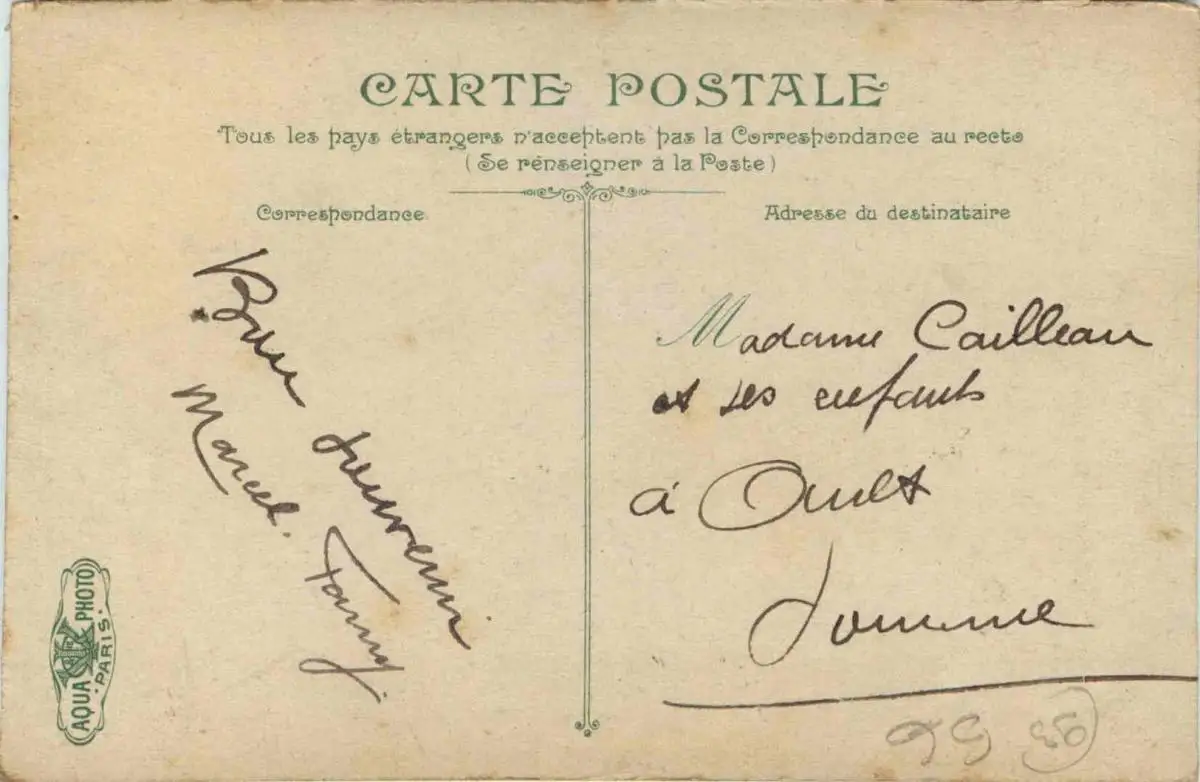 CARTE POSTALE
Tous les pays étrangers n'acceptent pas la Correspondance au recto
(Se rénseigner à la Poste)
Correspondance
Adresse du destinataire
Bon souvenir
Marcel. Fanny.
Madame Cailleau
et ses enfants
à Ault
Somme
AQUA PHOTO
PARIS